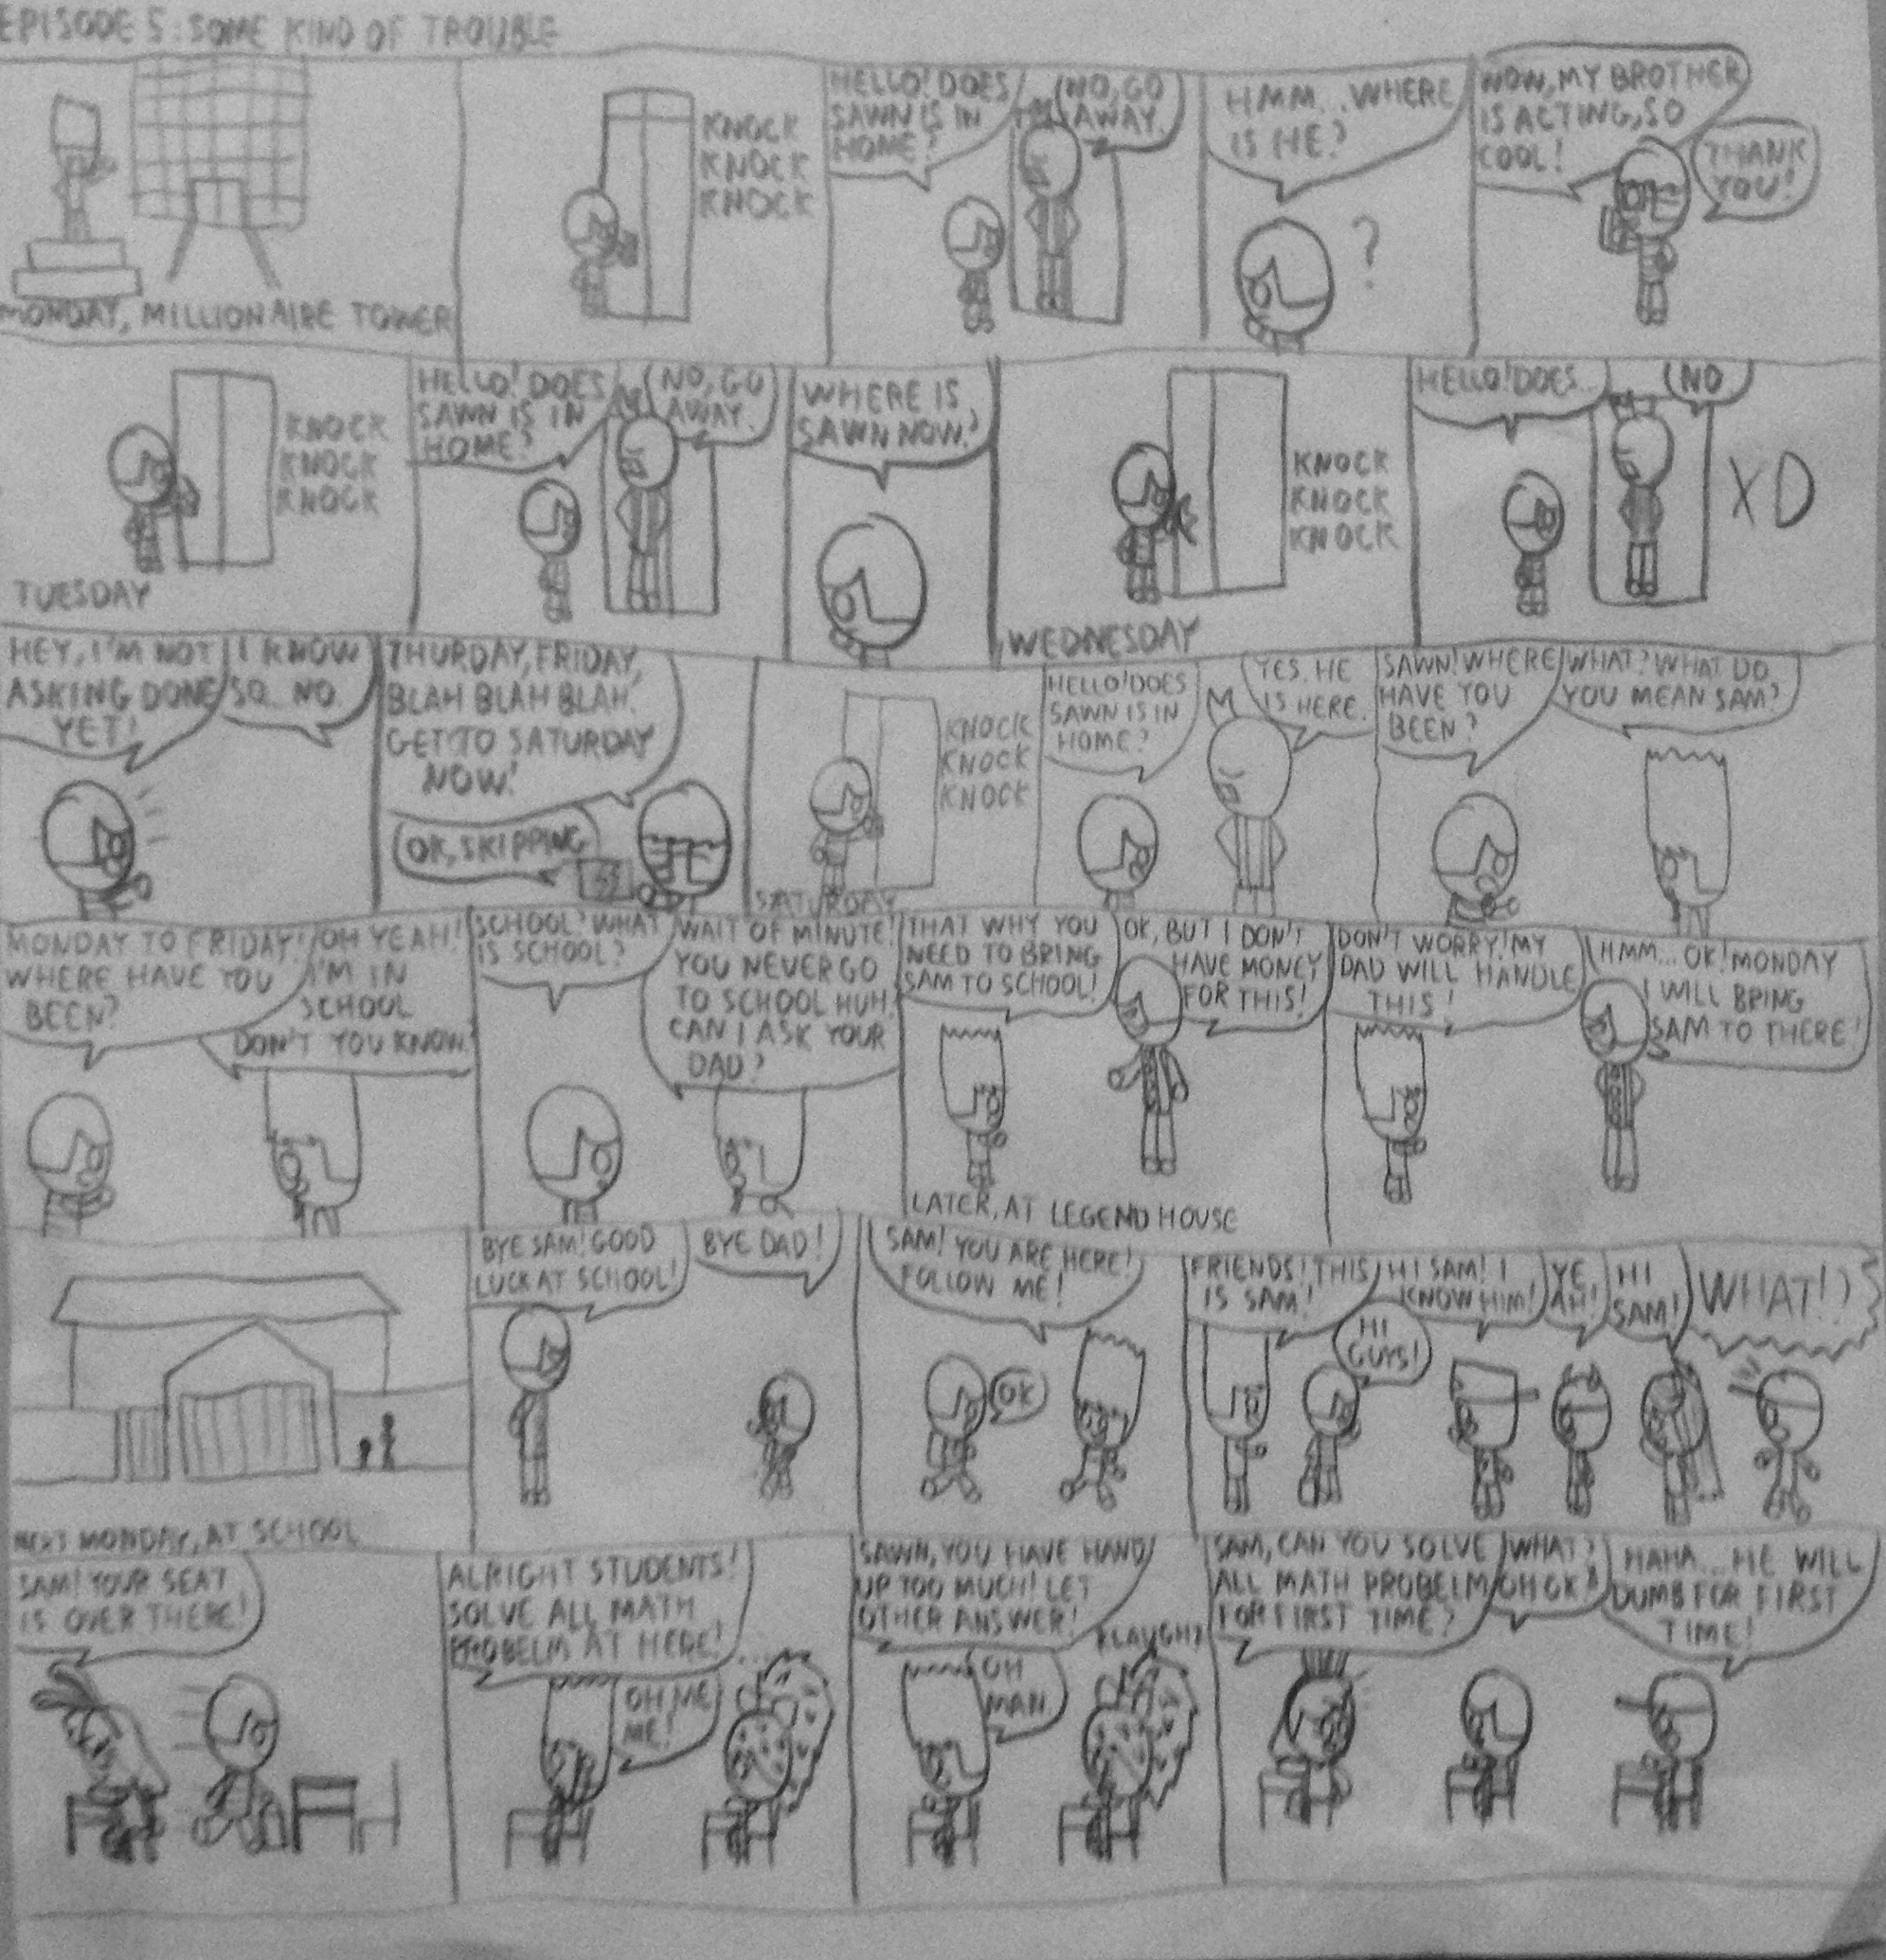 EPISODE 5: SOME KIND OF TROUBLE
MONDAY, MILLIONAIRE TOWER
KNOCK
KNOCK
KNOCK
HELLO! DOES
SAWN IS IN
HOME?
NO, GO
AWAY.
HMM... WHERE
IS HE?
WOW, MY BROTHER
IS ACTING, SO
COOL!
THANK
YOU!
TUESDAY
KNOCK
KNOCK
KNOCK
HELLO! DOES
SAWN IS IN
HOME?
NO, GO
AWAY.
WHERE IS
SAWN NOW?
WEDNESDAY
KNOCK
KNOCK
KNOCK
HELLO! DOES...
NO
XD
HEY, I'M NOT
ASKING DONE
YET!
I KNOW
SO.. NO.
THURDAY, FRIDAY,
BLAH BLAH BLAH.
GET TO SATURDAY
NOW!
OK, SKIPPING
SATURDAY
KNOCK
KNOCK
KNOCK
HELLO! DOES
SAWN IS IN
HOME?
YES. HE
IS HERE.
SAWN! WHERE
HAVE YOU
BEEN?
WHAT? WHAT DO
YOU MEAN SAM?
MONDAY TO FRIDAY!
WHERE HAVE YOU
BEEN?
OH YEAH!
I'M IN
SCHOOL
DON'T YOU KNOW.
SCHOOL? WHAT
IS SCHOOL?
WAIT OF MINUTE!
YOU NEVER GO
TO SCHOOL HUH.
CAN I ASK YOUR
DAD?
THAT WHY YOU
NEED TO BRING
SAM TO SCHOOL!
OK, BUT I DON'T
HAVE MONEY
FOR THIS!
LATER, AT LEGEND HOUSE
DON'T WORRY! MY
DAD WILL HANDLE
THIS!
HMM... OK! MONDAY
I WILL BRING
SAM TO THERE!
NEXT MONDAY, AT SCHOOL
BYE SAM! GOOD
LUCK AT SCHOOL!
BYE DAD!
SAM! YOU ARE HERE!
FOLLOW ME!
OK
FRIENDS! THIS
IS SAM!
HI
GUYS!
HI SAM! I
KNOW HIM!
YE
AH!
HI
SAM!
WHAT!?
SAM! YOUR SEAT
IS OVER THERE!
ALRIGHT STUDENTS!
SOLVE ALL MATH
PROBELM AT HERE!
OH ME
ME!
....
SAWN, YOU HAVE HAND
UP TOO MUCH! LET
OTHER ANSWER!
OH
MAN
*LAUGH*
SAM, CAN YOU SOLVE
ALL MATH PROBELM
FOR FIRST TIME?
WHAT?
OH OK!
HAHA... HE WILL
DUMB FOR FIRST
TIME!